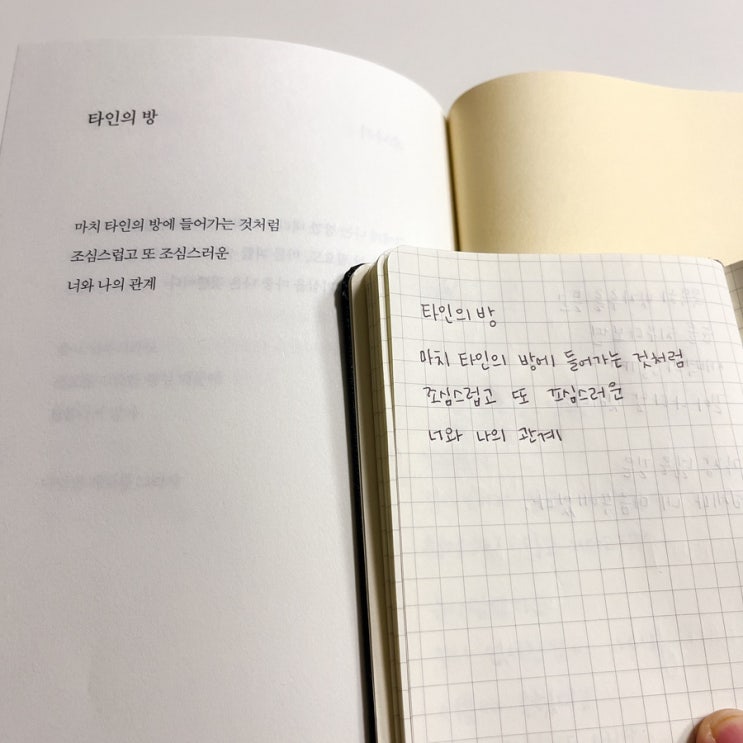 타인의 방
마치 타인의 방에 들어가는 것처럼
조심스럽고 또 조심스러운
너와 나의 관계
타인의 방
마치 타인의 방에 들어가는 것처럼
조심스럽고 또 조심스러운
너와 나의 관계